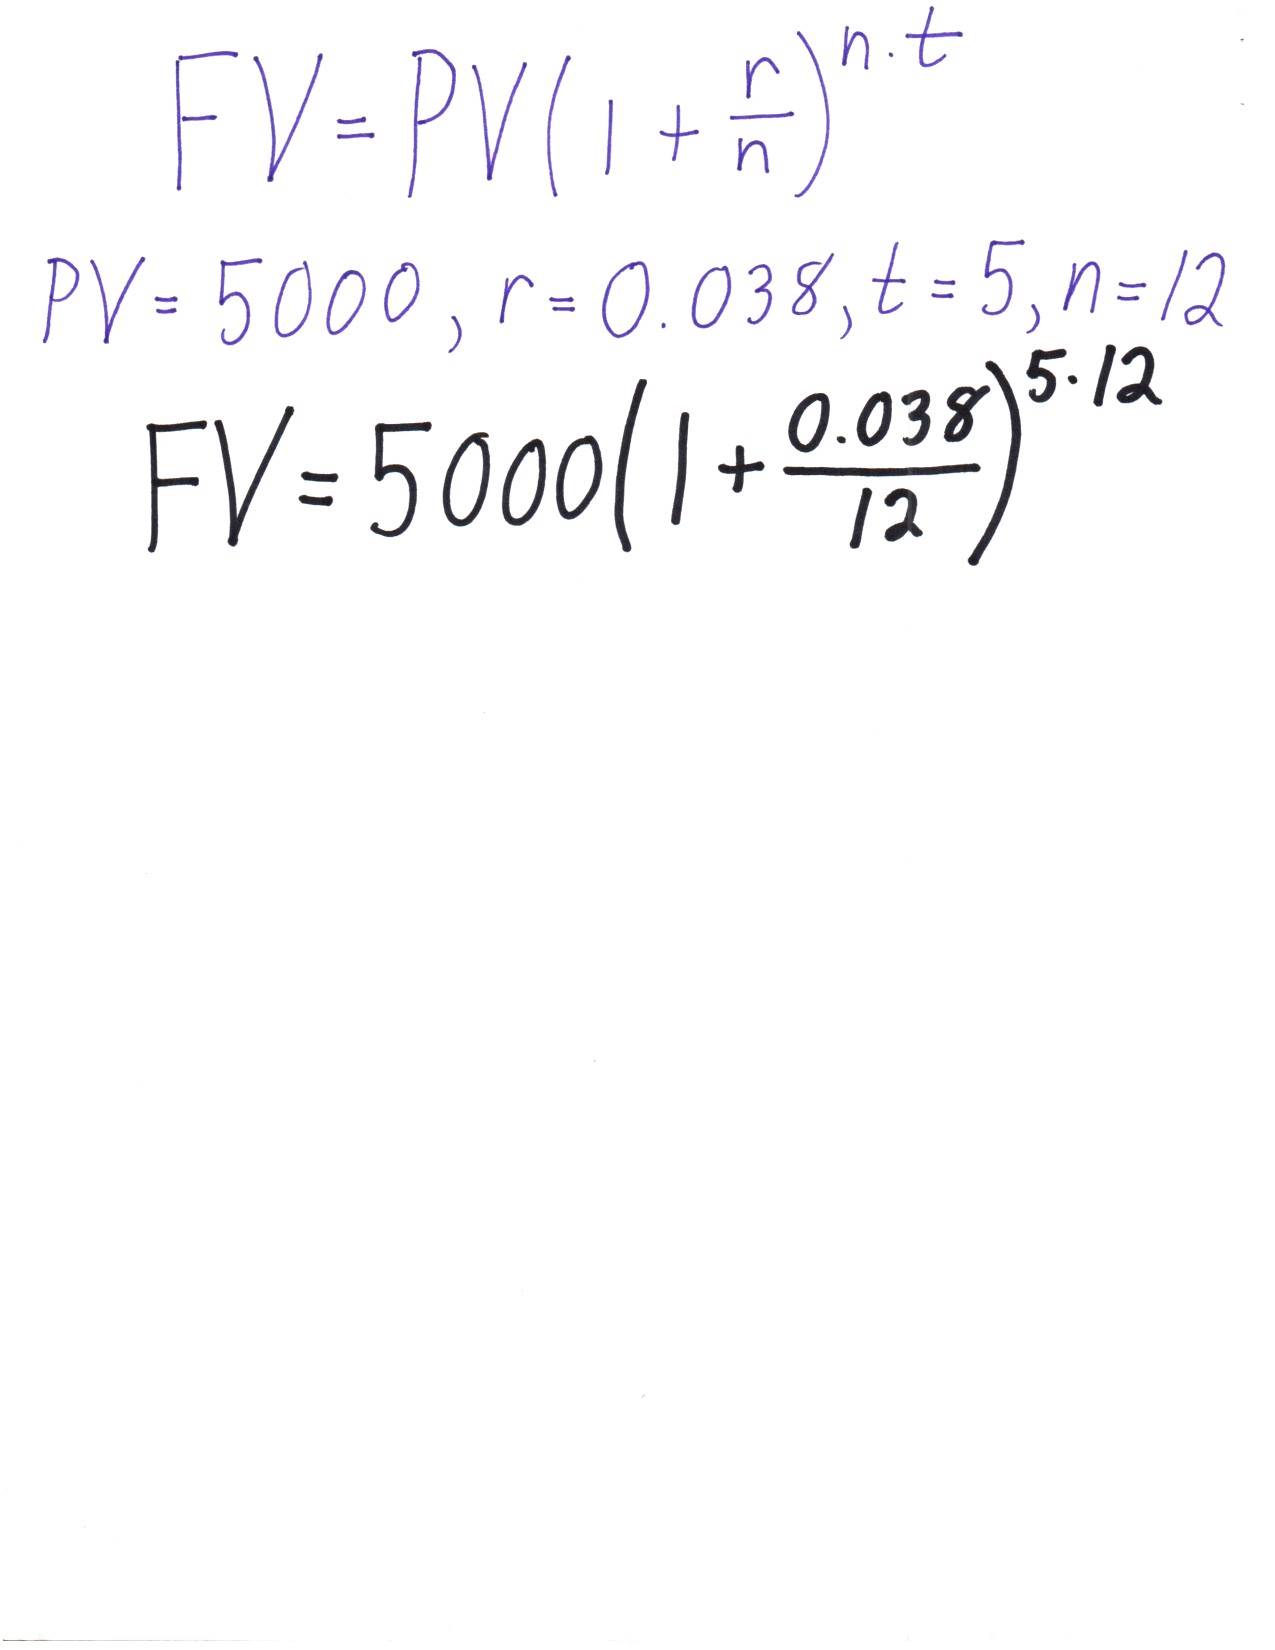 FV = PV(1 + r/n)^n·t
PV = 5000, r = 0.038, t = 5, n = 12
FV = 5000(1 + 0.038/12)^5·12